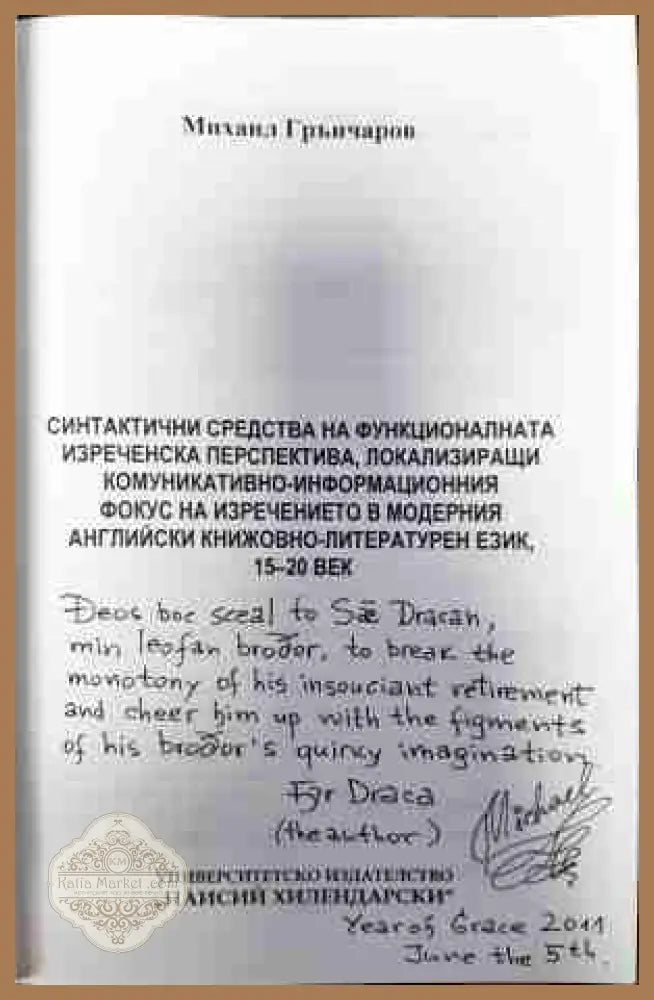 Михаил Грънчаров
СИНТАКТИЧНИ СРЕДСТВА НА ФУНКЦИОНАЛНАТА
ИЗРЕЧЕНСКА ПЕРСПЕКТИВА, ЛОКАЛИЗИРАЩИ
КОМУНИКАТИВНО-ИНФОРМАЦИОННИЯ
ФОКУС НА ИЗРЕЧЕНИЕТО В МОДЕРНИЯ
АНГЛИЙСКИ КНИЖОВНО-ЛИТЕРАТУРЕН ЕЗИК,
15–20 ВЕК
Ðeos boc sceal to Sǣ Dracan,
min leofan broðor, to break the
monotony of his insouciant retirement
and cheer him up with the figments
of his broðor's quirky imagination
Fyr Draca
(the author)
Michael
KM
Katia Market.com
УНИВЕРСИТЕТСКО ИЗДАТЕЛСТВО
ПАИСИЙ ХИЛЕНДАРСКИ“
Year of Grace 2011
June the 5th.